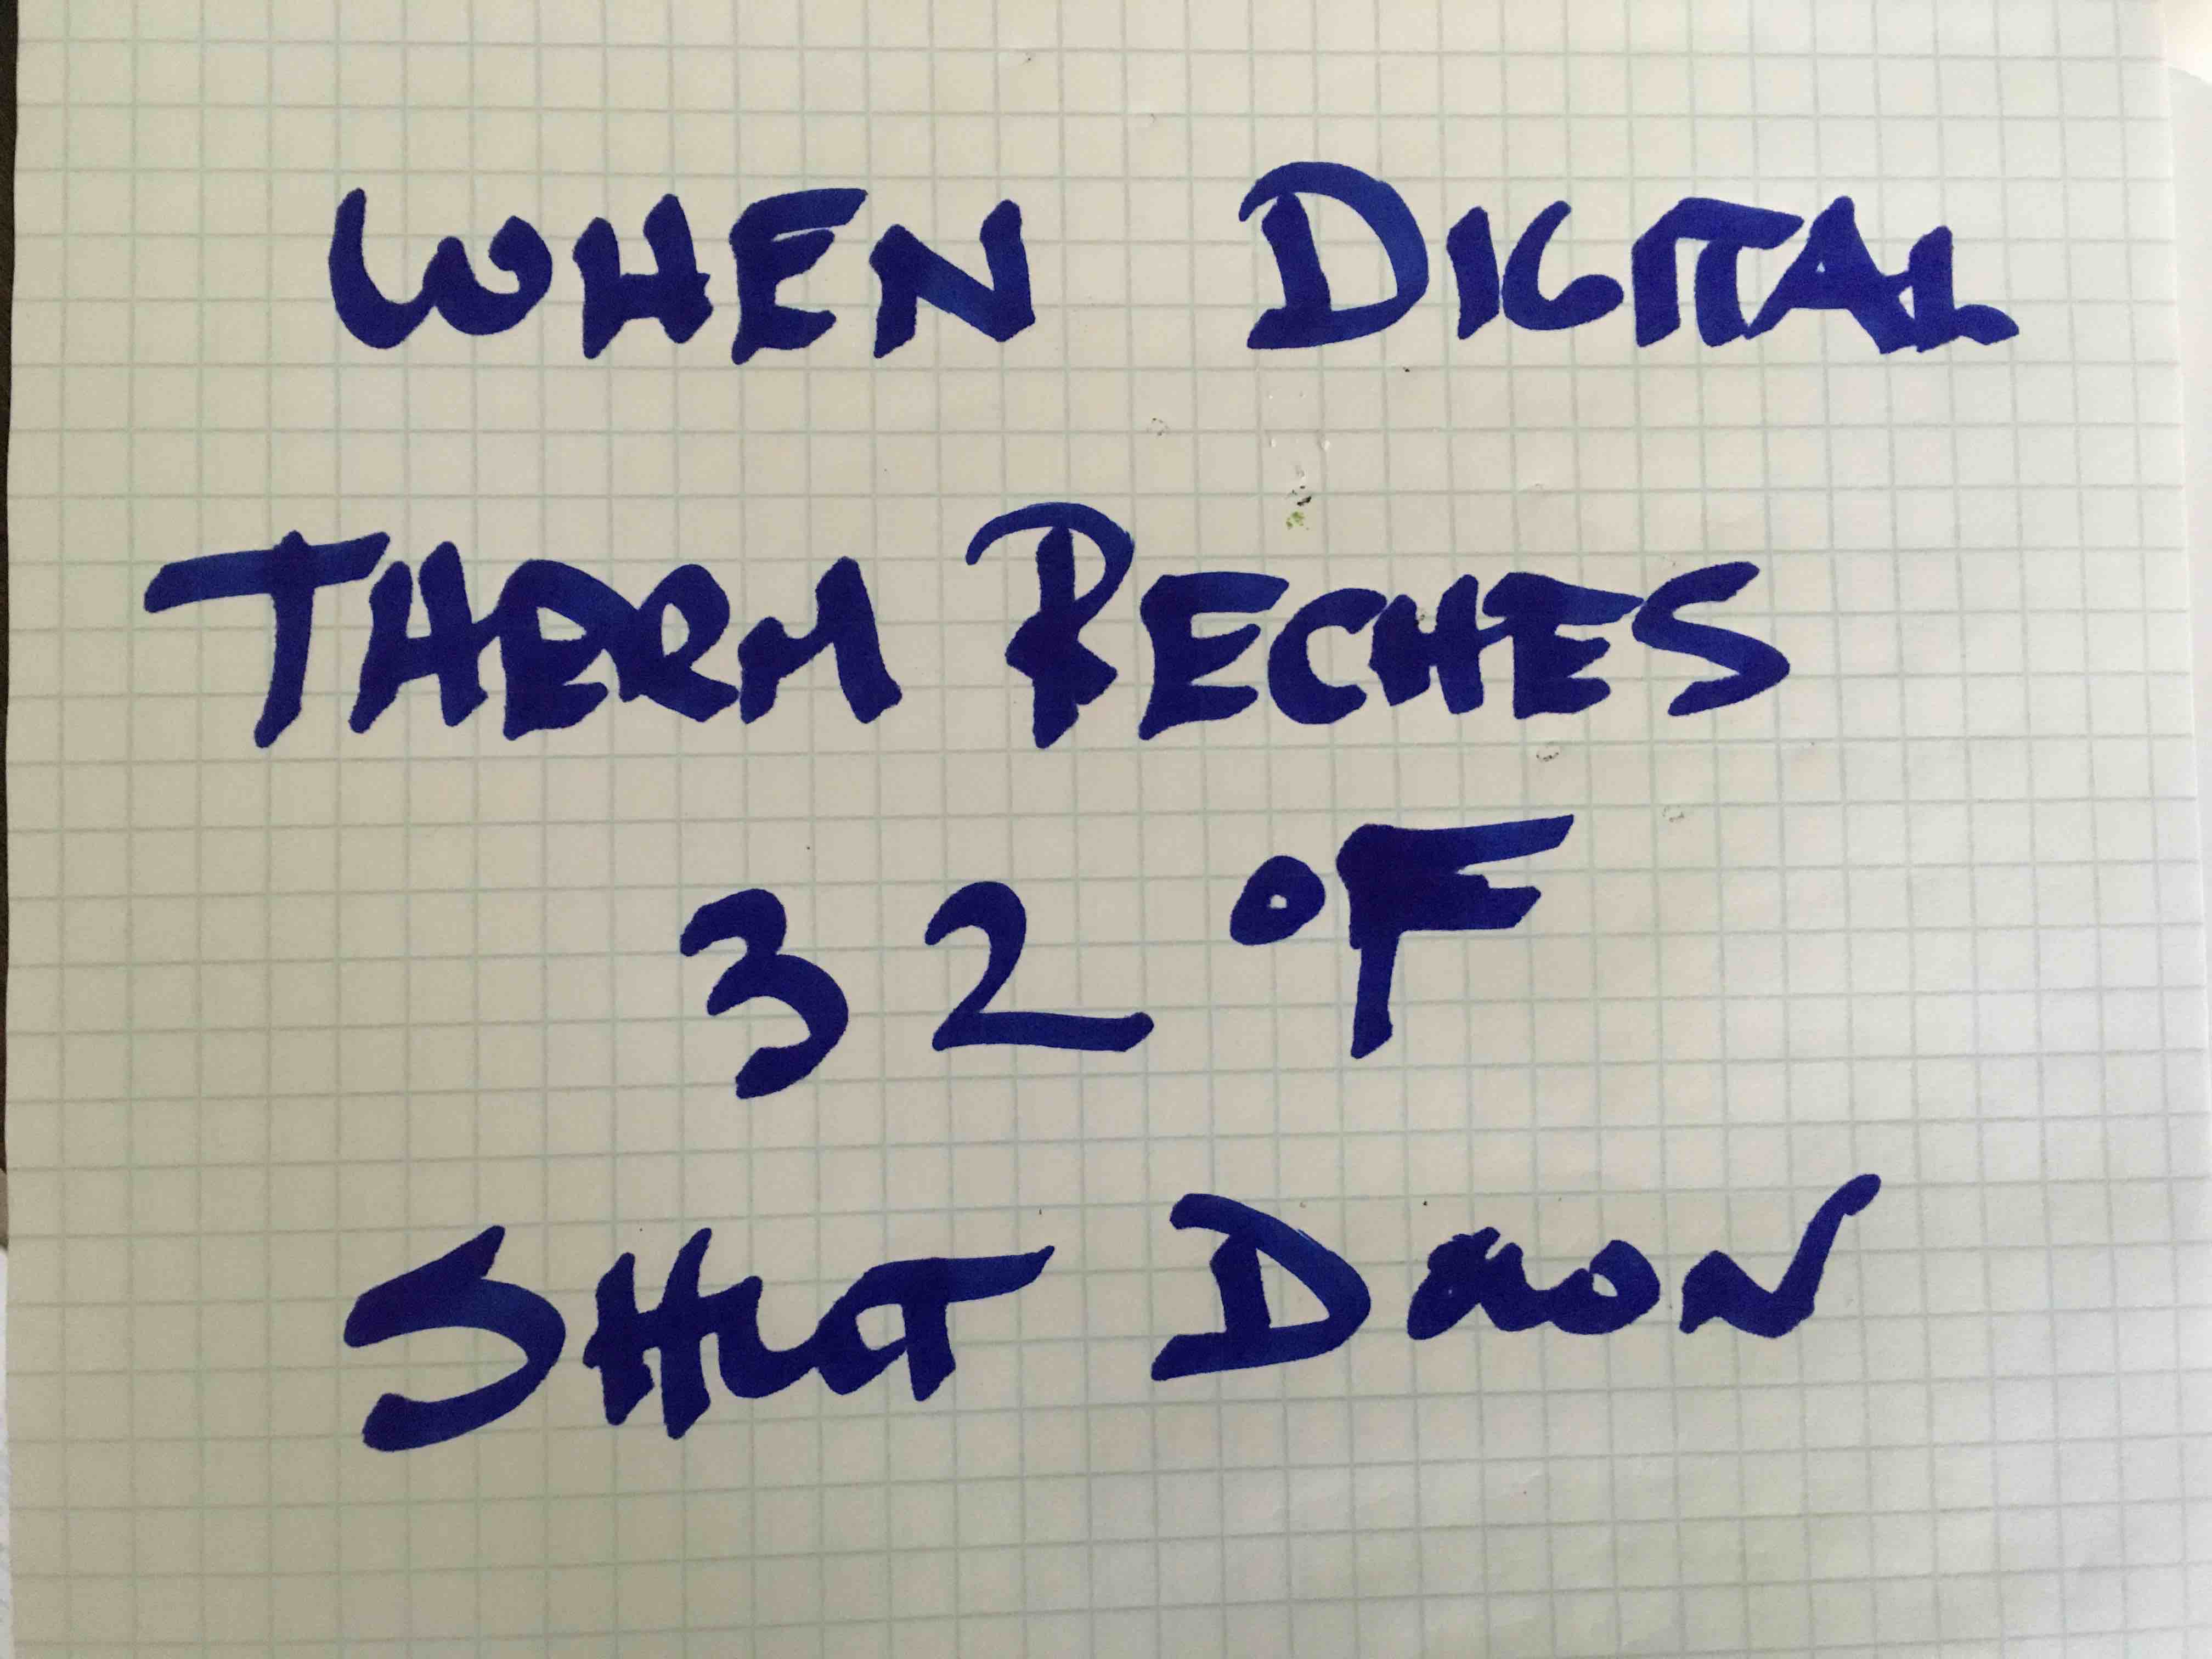 WHEN DIGITAL
THERM RECHES
32 °F
SHUT DWON